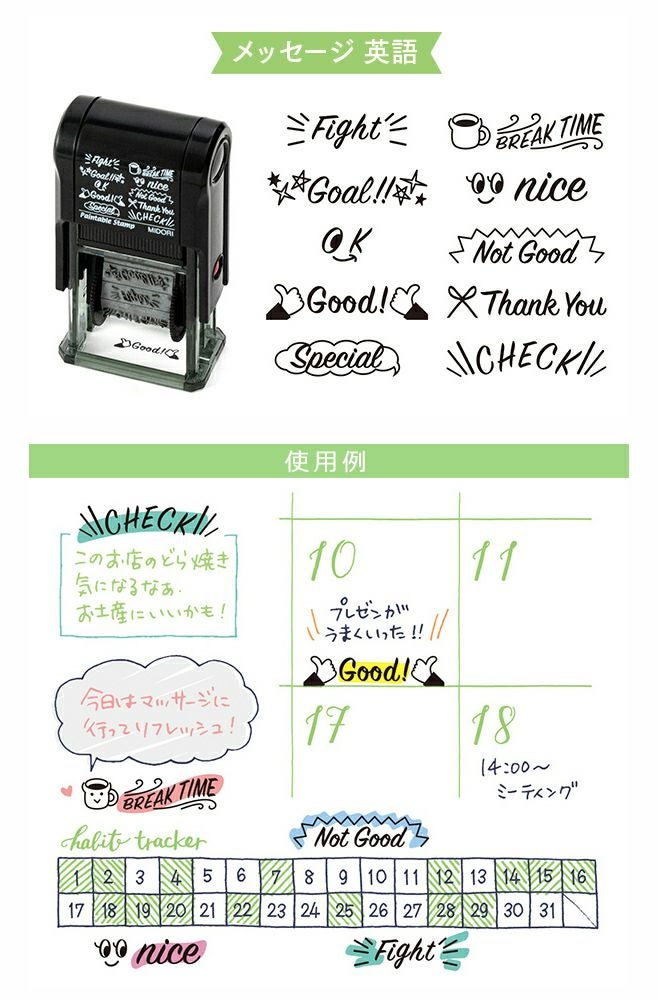 メッセージ 英語
Fight
BREAK TIME
Goal!!
nice
OK
Not Good
Good!
Thank You
Special
CHECK!
Fight
BREAK TIME
Goal!!
nice
OK
Not Good
Good!
Thank You
Special
CHECK!
Paintable Stamp
MIDORI
Good!
使用例
CHECK!
このお店のどら焼き
気になるなぁ.
お土産にいいかも!
10
11
プレゼンが
うまくいった!!
Good!
今日はマッサージに
行ってリフレッシュ!
BREAK TIME
17
18
14:00〜
ミーティング
habit tracker
Not Good
1 2 3 4 5 6 7 8 9 10 11 12 13 14 15 16
17 18 19 20 21 22 23 24 25 26 27 28 29 30 31
nice
Fight